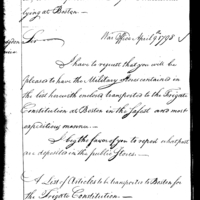 lying at Boston.
Sir War Office April 9th 1798
I have to request that you will be
pleased to have the Military Stores contained in
the list herewith enclosed transported to the Frigate
Constitution at Boston in the safest and most
expeditious manner.
I beg the favor of you to report what part
are deposited in the public Stores.
A List of Articles to be transported to Boston for
the Frigate Constitution.